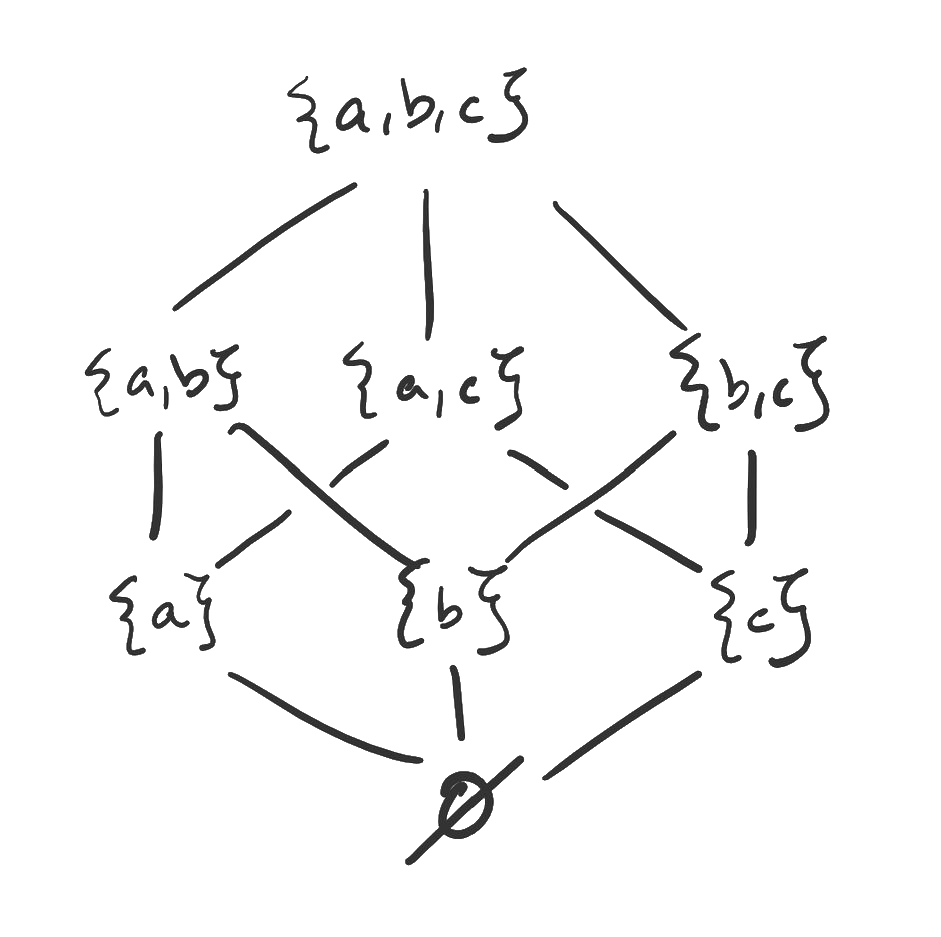 {a,b,c}
{a,b} {a,c} {b,c}
{a} {b} {c}
∅